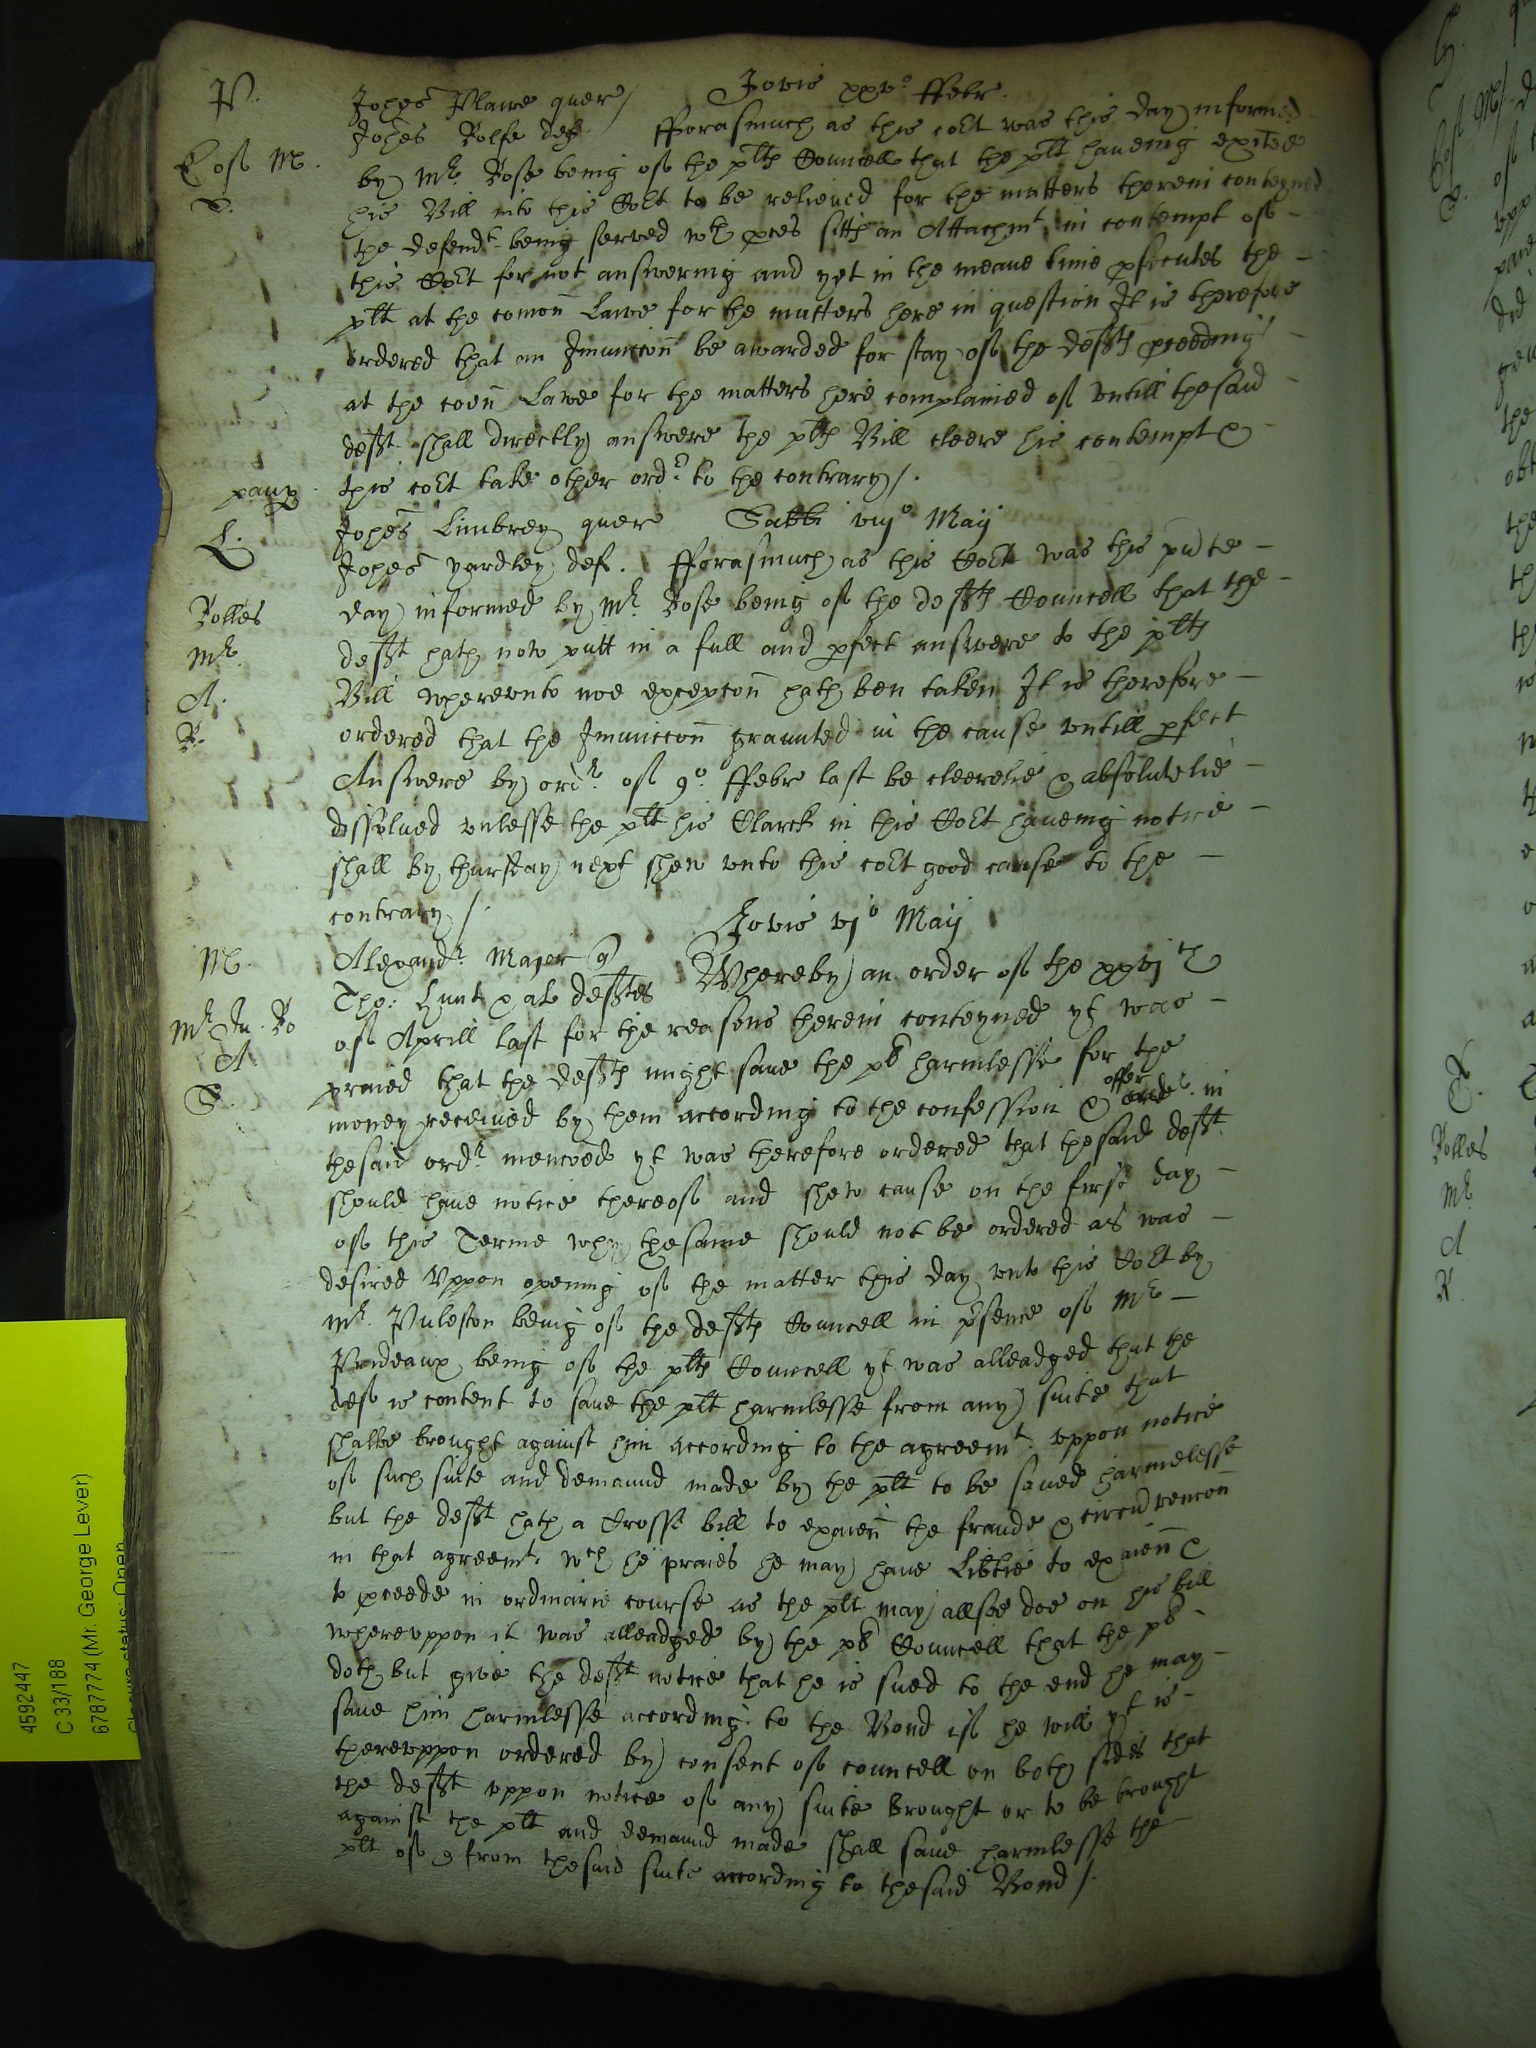 P.
Johes Plawe quer / Jovis xxv° ffebr.
Johes Rolfe def. fforasmuch as this cort was this day informed
E of M.
by Mr. Rose being of the plts Councell that the plt haveing exited
his Bill into this Cort to be relieved for the matters therein conteyned
the defendt being served wth pces sitts an Attachmt in contempt of –
this Cort for not answering and yet in the meane time psecutes the –
plt at the comon Lawe for the matters here in question It is therefore
ordered that an Iniunccon be awarded for stay of the defts pceedings –
at the coen Lawe for the matters here complained of untill thesaid –
deft shall directly answere the plts Bill cleere his contempt &
this cort take other ordr to the contrary /.
paup
L.
Johes Limbrey quer Sabbi viij° Maij
Johes yardley def. fforasmuch as this Cort was this pnte –
Rolles
day informed by Mr. Rose being of the defts Councell that the –
Mr.
deft hath now putt in a full and pfect answere to the plts
A.
Bill whereunto noe excepcon hath ben taken It is therefore –
R.
ordered that the Iniunccon graunted in the cause untill pfect
Answere by ordr. of 9° ffebr last be cleerelie & absolutelie –
dissolved unlesse the plt his Clarck in this Cort haveing notice –
shall by thursday next shew unto this cort good cause to the –
contrary /.
Jovis vj° Maij
M.
Alexandr Major q
Tho: Hunt & al deftes Whereby an order of the xxvjth
Mr Ju. Ro
of Aprill last for the reasons therein conteyned yt was –
A
praied that the defts might save the pl harmlesse for the
S.
money received by them according to the confession & offer in
thesaid ordr. mencoed yt was therefore ordered that thesaid deft
should have notice thereof and shew cause on the first day –
of this Terme why thesame should not be ordered as was –
desired Uppon opening of the matter this day unto this Cort by
Mr. Puleston being of the defts Councell in psence of Mr –
Prideaux being of the plts Councell yt was alleadged that the
def is content to save the plt harmlesse from any suite that
shalbe brought against him according to the agreemt. uppon notice
of such suite and demaund made by the plt to be saved harmelesse
but the deft hath a Crosse bill to exaien the fraude & circumvencon
in that agreemt. wch he praies he may have Libtie to exaien &
to pceede in ordinarie course as the plt may allsoe doe on his bill
whereuppon it was alleadged by the pl Councell that the pl –
doth but give the deft notice that he is sued to the end he may –
save him harmlesse according to the Bond if he will yt is –
thereuppon ordered by consent of councell on both sides that
the deft uppon notice of any suite brought or to be brought
against the plt and demaund made shall save harmlesse the –
plt of & from thesaid suite according to thesaid Bond /.
4592447
C 33/188
6787774 (Mr. George Lever)
Closure status: Open
Rolles
Mr
A
R.